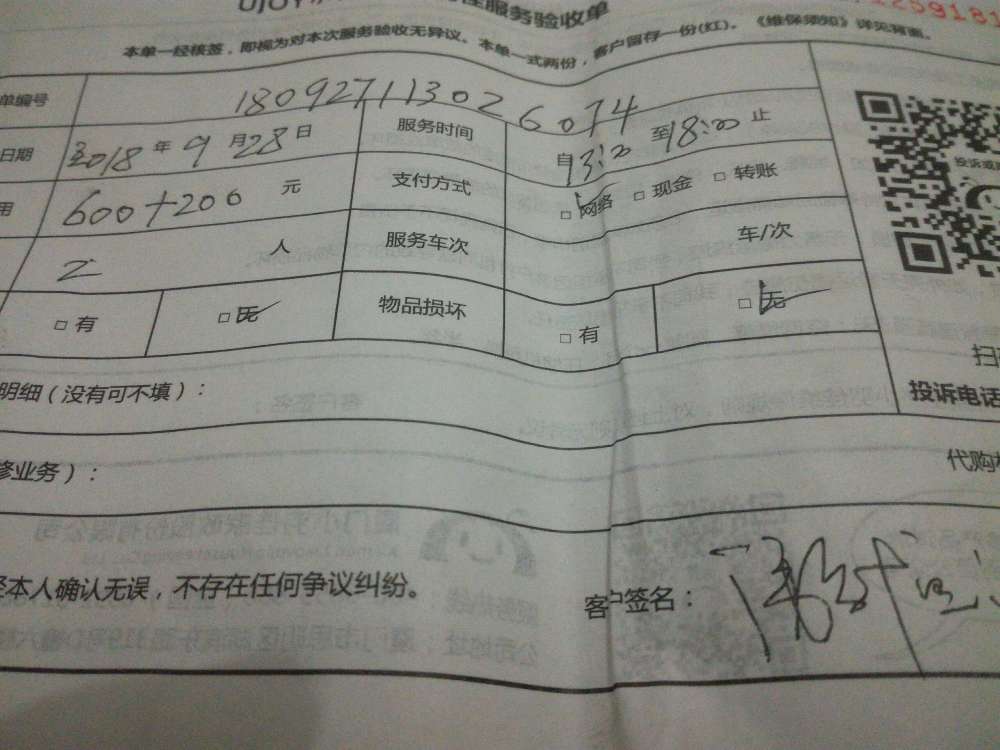 UJOY 性服务验收单
1259181
本单一经核签，即视为对本次服务验收无异议。本单一式两份，客户留存一份(红)。《维保须知》详见背面。
单编号 180927113026074
日期 2018 年 9 月 28 日 服务时间 自 13:00 至 18:00 止
用 600+200 元 支付方式 □ 网络 □ 现金 □ 转账
2 人 服务车次 车/次
□ 有 □ 无 物品损坏 □ 有 □ 无
投诉或
扫
投诉电话
明细（没有可不填）：
修业务）：
代购
经本人确认无误，不存在任何争议纠纷。
客户签名：